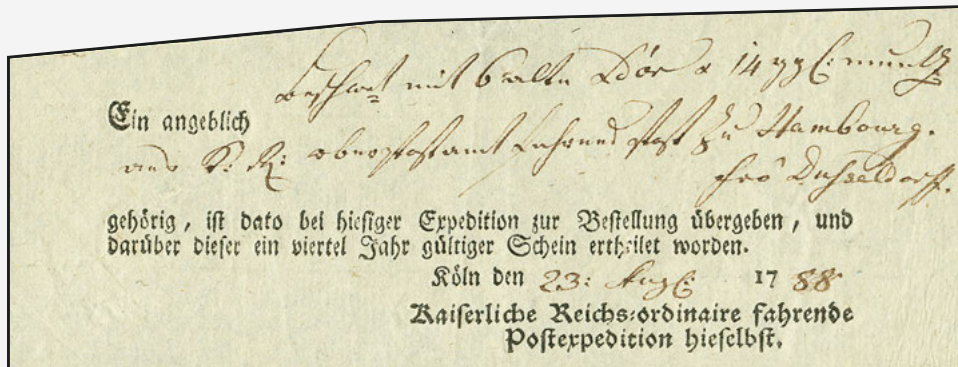 mit 6 alte Ldor a 14
Ein angeblich
K: R: oberpostamt fahrend post zu Hambourg.
pro Dusseldorff.
gehörig, ist dato bei hiesiger Expedition zur Bestellung übergeben, und
darüber dieser ein viertel Jahr gültiger Schein ertheilet worden.
Köln den 23: Aug: 1788
Kaiserliche Reichs-ordinaire fahrende
Postexpedition hieselbst.